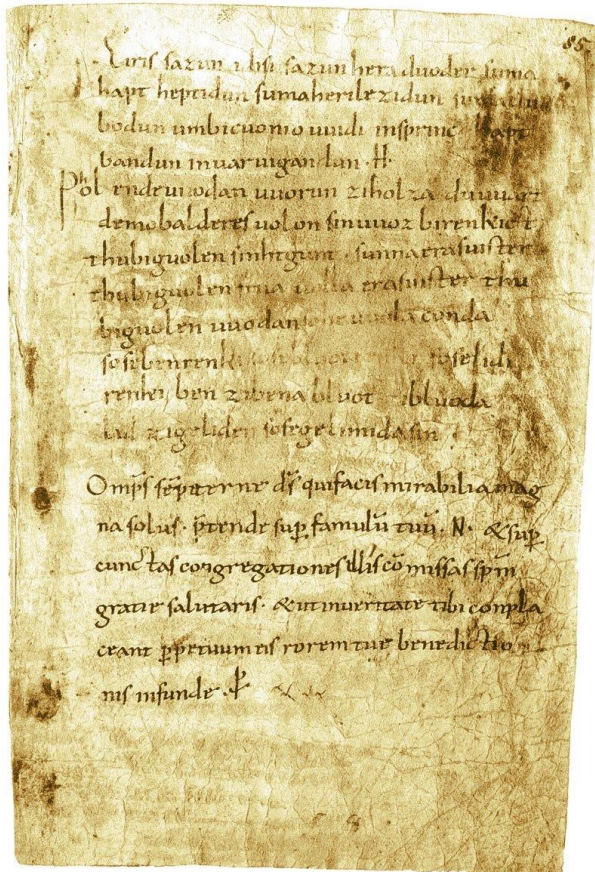 85
Eiris sazun idisi sazun hera duoder suma
hapt heptidun suma heri lezidun suma clu
bodun umbi cuonio uuidi insprinc hapt
bandun inuar uigandun .H.
Phol ende uuodan uuorun zi holza du uuart
demo balderes uolon sin uuoz birenkict
thu biguolen sinhtgunt . sunna era suister
thu biguolen friia uolla era suister thu
biguolen uuodan so he uuola conda
sose benrenki sose lidi
renki ben zi bena bluot zi bluoda
lid zi geliden sose gelimida sin
Omp̄s sēpiterne d̄s qui facis mirabilia mag
na solus . p̄tende sup̱ famulū tuū . N . & sup̱
cunctas congregationes illis cō missas sp̄m
gratie salutaris . & ut in ueritate tibi conpla
ceant p̱p̱etuum eis rorem tue benedictio
nis infunde . p̱